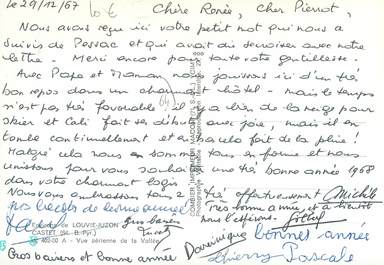 Le 29/12/67
Chère Renée, Cher Pierrot,
Nous avons reçu ici votre petit mot qui nous a
suivis de Pessac et qui avait dû se croiser avec notre
lettre. Merci encore pour toute votre gentillesse.
Avec Papa et Maman nous jouissons ici d'un très
bon repos dans un charmant hôtel - mais le temps
n'est pas très favorable il y a bien de la neige pour
skier et Cali fait ses débuts avec joie, mais il en
tombe continuellement et en bas cela fait de la pluie !
Malgré cela nous en sommes tous en forme et nous
unissons pour vous souhaiter une très bonne année 1968
dans votre charmant logis
Nous vous embrassons tous 2 très affectueusement Michèle
gros bécots de bonne année
Très bonne année, et à bientôt
nous l'espérons.
gros baisers
LOUVIE-JUZON
CASTET (B.-Pyr.)
Vue aérienne de la Vallée
Dominique
bonnes année
Thierry Pascale
Gros baisers et bonne année
COMBIER IMPRIMEUR MACON